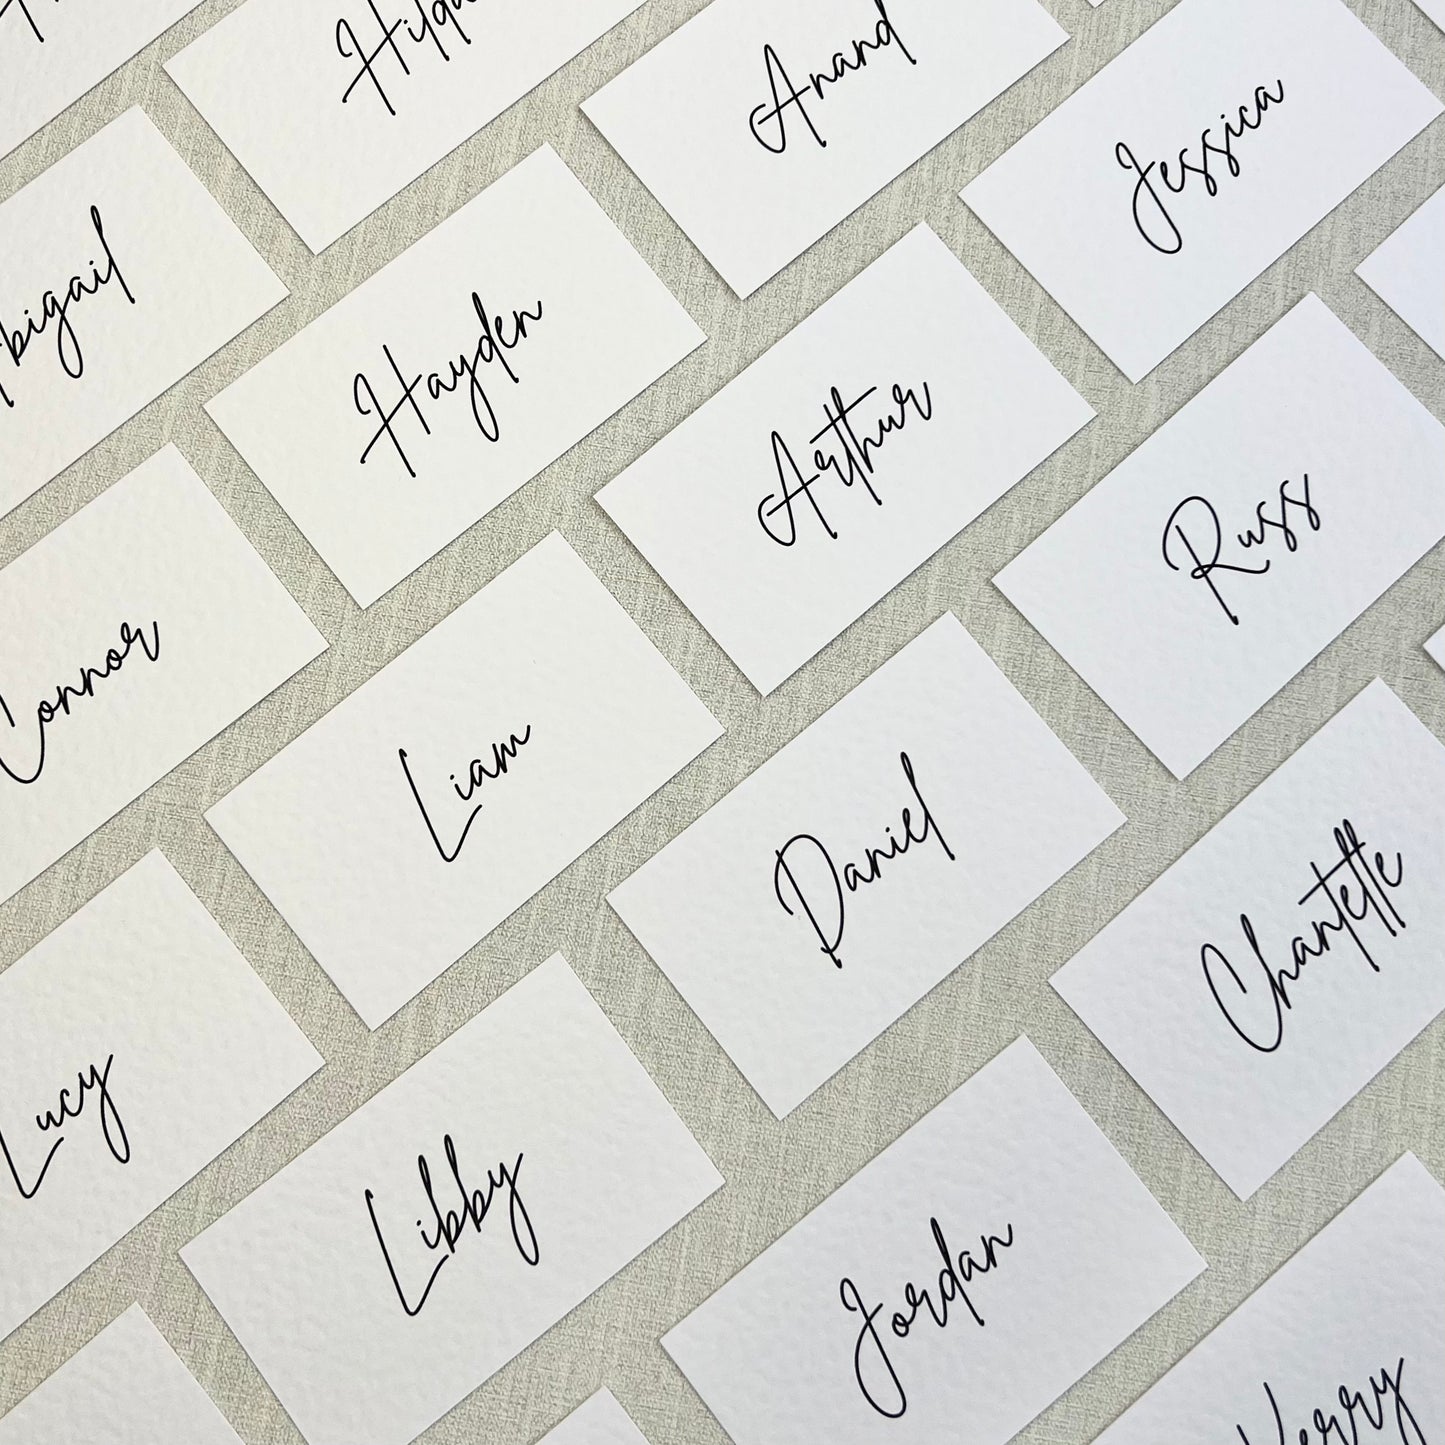 Anand
Jessica
Abigail
Hayden
Arthur
Russ
Connor
Liam
Daniel
Chantelle
Lucy
Libby
Jordan
Kerry